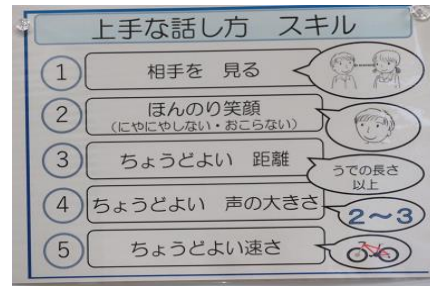 上手な話し方　スキル
1
相手を　見る
2
ほんのり笑顔
(にやにやしない・おこらない)
3
ちょうどよい　距離
うでの長さ
以上
4
ちょうどよい　声の大きさ
2～3
5
ちょうどよい速さ